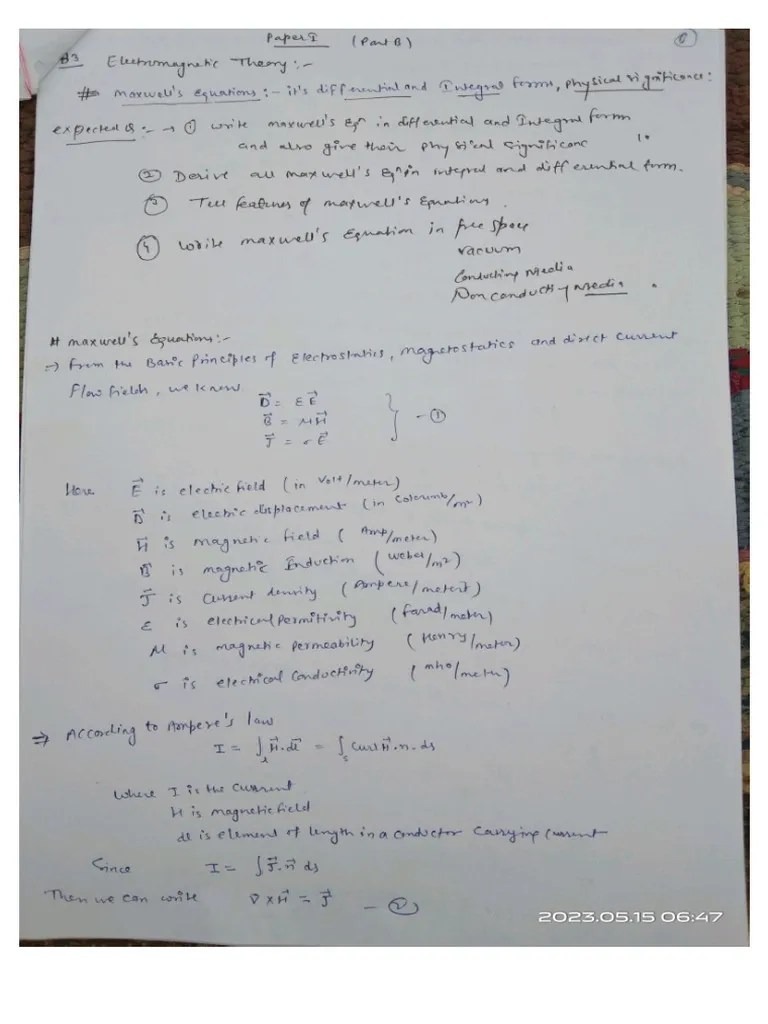 Paper I (Part B)
B3 Electromagnetic Theory :-
# Maxwell's Equations :- it's differential and Integral forms, physical significance :
expected Q :- → ① write maxwell's Eqn in differential and Integral form
and also give their physical significanc
② Derive all maxwell's Eqn in integral and differential form.
③ Tell features of maxwell's Equations.
④ Write maxwell's Equation in free space
vacuum
Conducting Media
Non conducting Media .
# maxwell's Equations :-
→ From the Basic Principles of Electrostatics, Magnetostatics and direct current
Flow fields, we know
D⃗ = ε E⃗
B⃗ = μ H⃗ } - ①
J⃗ = σ E⃗
Here E⃗ is electric field (in Volt/meter)
D⃗ is electric displacement (in Coloumb/m²)
H⃗ is magnetic field ( Amp/meter)
B⃗ is magnetic Induction (weber/m²)
J⃗ is current density (Ampere/meter²)
ε is electrical Permitivity (farad/meter)
μ is magnetic permeability (Henry/meter)
σ is electrical Conductivity (mho/meter)
⇒ According to Ampere's law
I = ∫ₗ H⃗.dl⃗ = ∫ₛ Curl H⃗ . n . ds
where I is the current
H is magnetic field
dl is element of length in a conductor carrying current
Since I = ∫ J⃗.n⃗ ds
Then we can write ∇ × H⃗ = J⃗ - ②
2023.05.15 06:47